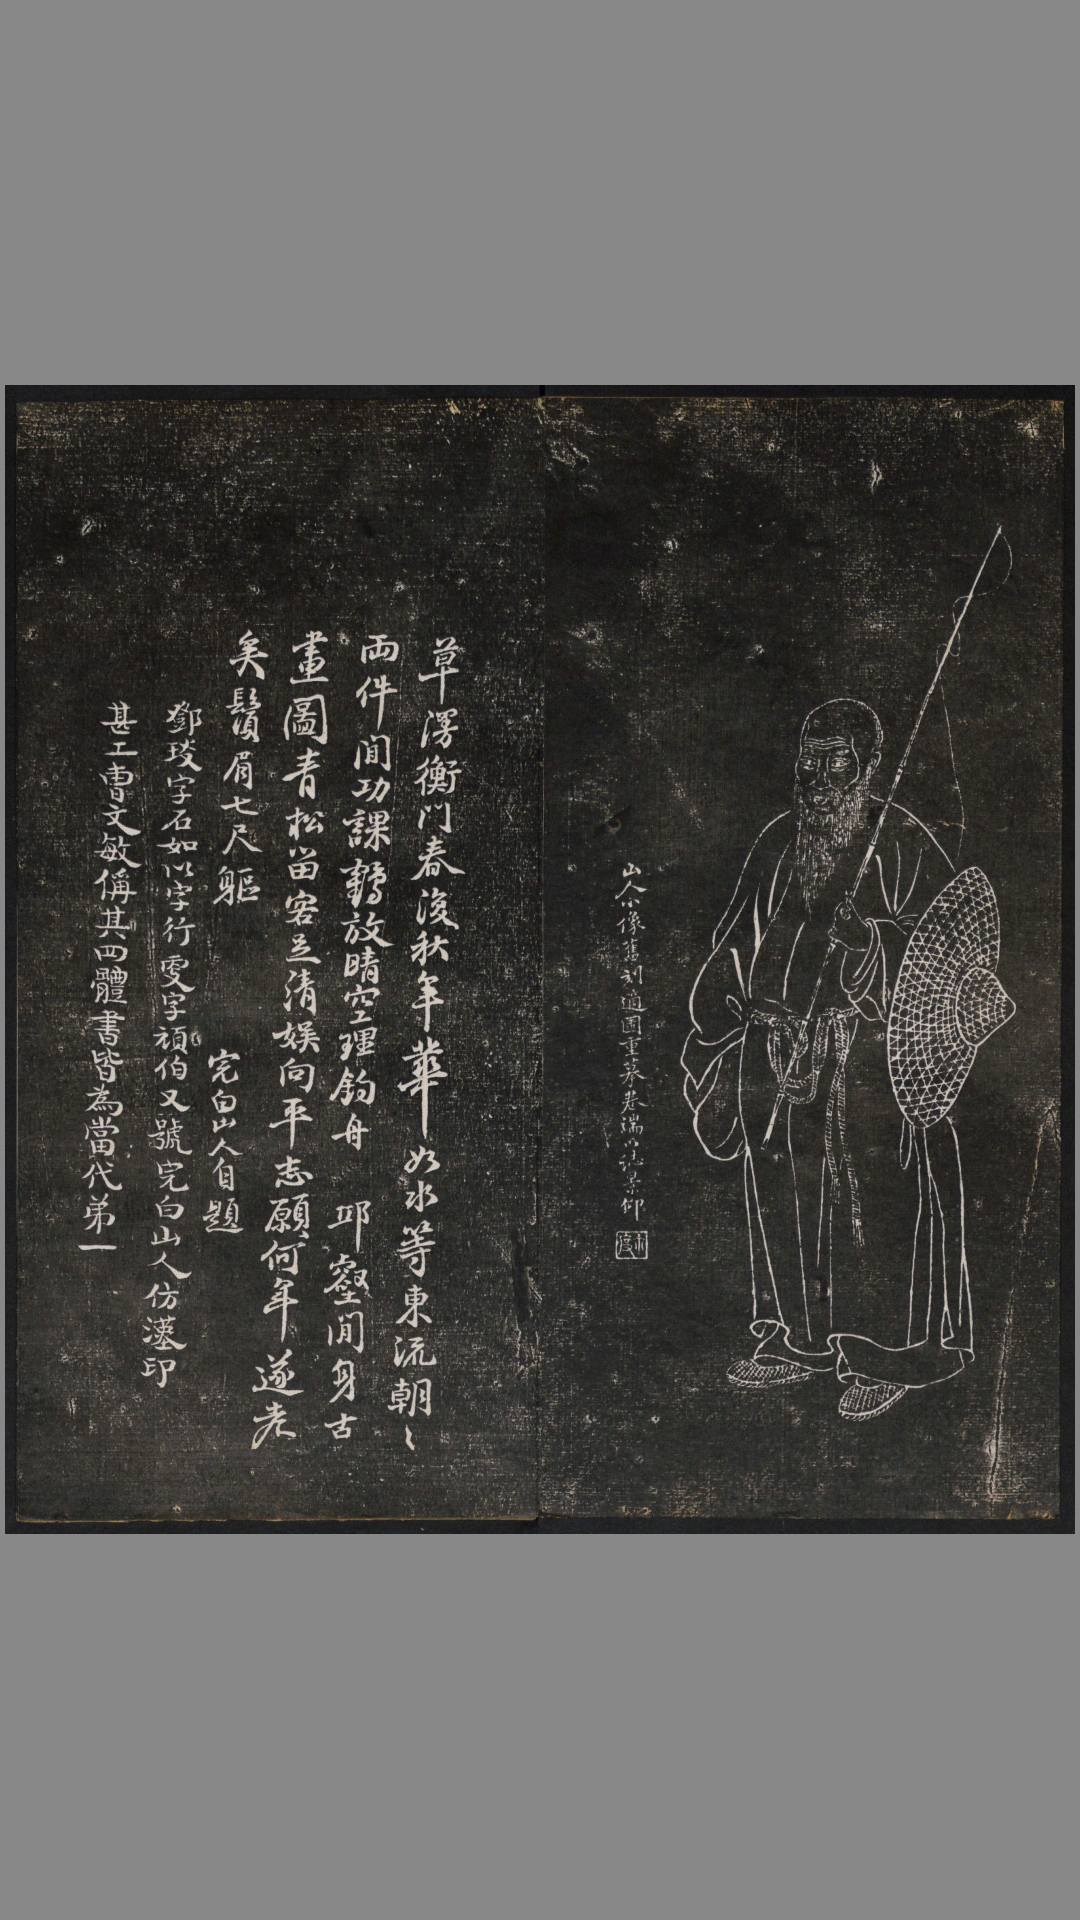 山人小像舊刻適園重摹卷端以誌景仰
草滛衡門春復秋年華如水等東流朝〻
両件閒功課鶴放晴空理釣舟 邱壑閒身古
畫圖青松留客立清娱向平志願何年遂老
矣鬚眉七尺軀
完白山人自題
鄧琰字石如以字行更字頑伯又號完白山人仿漢印
甚工曹文敏偁其四體書皆為當代弟一